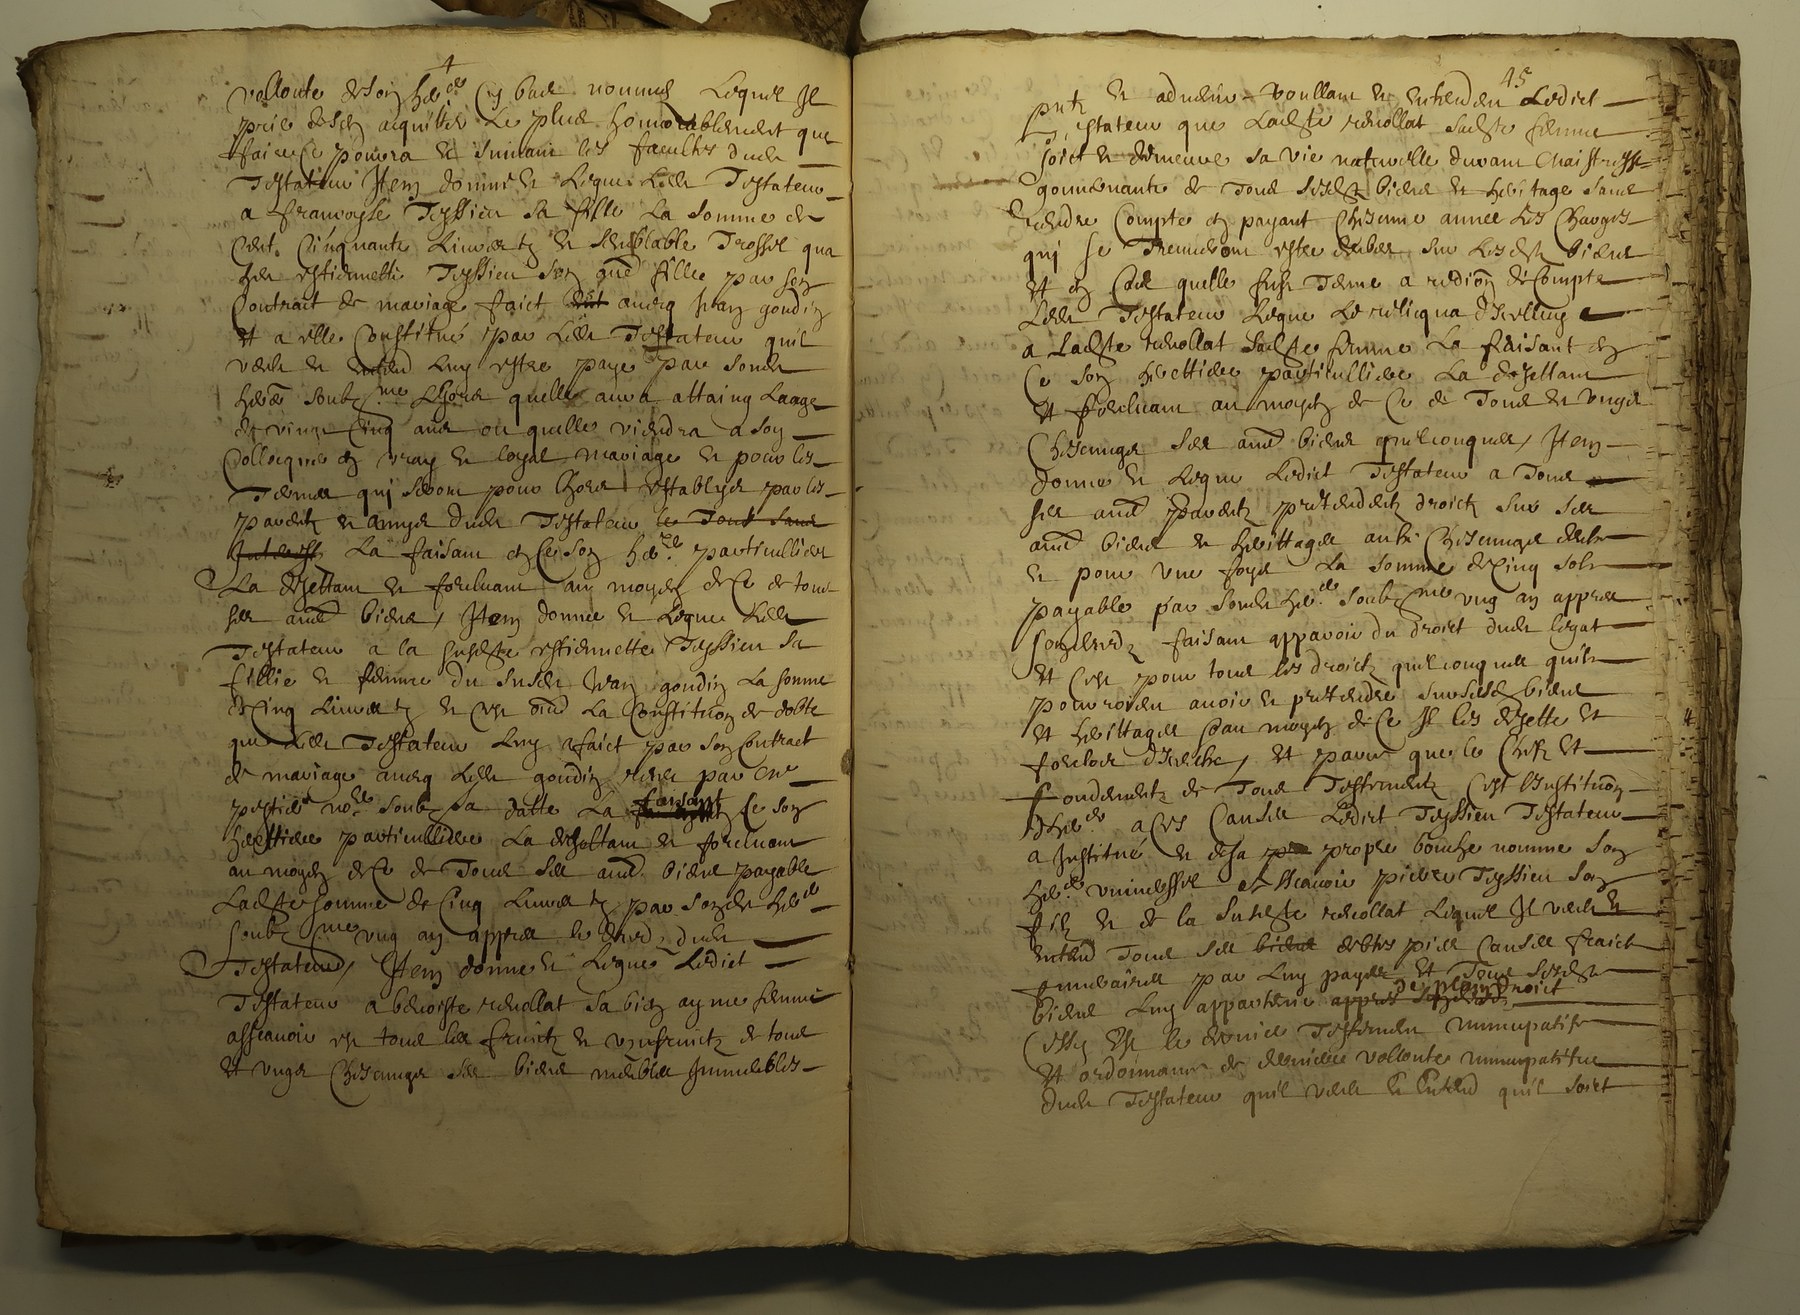 4
vollonte de son her.er Cy bas nommé Lequel Il
prie de sen acquitter Le plus honnorablement que
faire Ce pourra et suivant les facultes dudt
Testateur Item donne et Legue Ledt Testateur
a francoyse Teyssieu sa fille La somme de
Cent Cinquante Livres tz et semblable Trossel qua
heu estiennette Teyssieu son autre fille par son
Contrait de mariage faict avecq Jean goudin
et a elle Constitué par Ledt Testateur quil
veult et entend Luy estre paye par sondt
her soubz.me Lhors quelle aura attaing Laage
de vingt Cinq ans ou quelle viendra a son
Collocque en vray et loyal mariage et pour les
Termes qui seront pour lhors establys par les
parentz et amys dudt Testateur le Tout sans
Interestz La faisant en Ce son her.re particulliere
La dejettant et forcluant au moyen de Ce de tous
ses aues biens / Item donne et Legue Ledt
Testateur a la susdte estiennette Teyssieu sa
fillie et femme du susdt Jean goudin La somme
de Cinq Livres tz et Ce oultre La Constitution de dotte
que Ledt Testateur Luy a faict par son Contract
de mariage avecq Ledt goudin receu par me
no.re soubz sa datte La faisant Ce son
herettiere particulliere La dejettant et forcluant
au moyen de Ce de Tous ses aues biens payable
Ladte somme de Cinq Livres tz par sondt her.er
soubz.me ung an appres le deced dudt
Testateur / Item donne et Legue Ledict
Testateur a benoiste revollat sa bien aymee femme
asscavoir est tous les fruictz et usufruictz de tous
et ungs Chescungs ses biens meubles Immeubles
45
pntz et advenir voullant et entendant Ledict
Testateur que Ladte revollat sadte femme
soict et demeure sa vie naturelle durant maistresse
gouvernante de Tous sesdtz biens et heritage sans
rendre Compte en payant Chesenne annee Les Charges
qui se Treuveront estre deubes sur Lesdtz biens
et en Cas quelle fust Tenue a redion de Compte
Ledt Testateur Legue Le relicqua diceulluy
a Ladte revollat Sadte femme La faisant en
Ce son herettiere particulliere La dejettant
et forcluant au moyen de Ce de Tous et ungs
Chescungs ses aues biens quelconques / Item
donne et Legue Ledict Testateur a Tous
ses aues parentz pretendentz droictz sur ses
aues biens et herittages a ung Chescungs deulx
et pour une foys La somme de Cinq solz
payable par sondt her.er soubz.me ung an appres
son deced faisant apparoir du droict dudt legat
et Ce pour tous les droictz quelconques quilz
pourroient avoir et pretendre sur sesdtz biens
et herittages et au moyen de Ce Il les dejette et
forclos diceulx / et parce que le Chefz et
fondementz de Tous Testementz est Linstitution
dher.er a Ces Causes Ledict Teyssieu Testateur
a Institué et de sa propre bouche nomme son
her.er universsel et asscavoir pierre Teyssieu son
filz et de la susdte revollat Lequel Il veult et
entend Tous ses biens debtes pies Causes fraictz
funeraires par Luy payes et Tous sesdtz
biens Luy appartenir appres son deced de plain droict
Cessy Est le dernier Testement nuncupatif
et ordonnance de derniere vollonte nuncupative
dudt Testateur quil veult et Entend quil soict